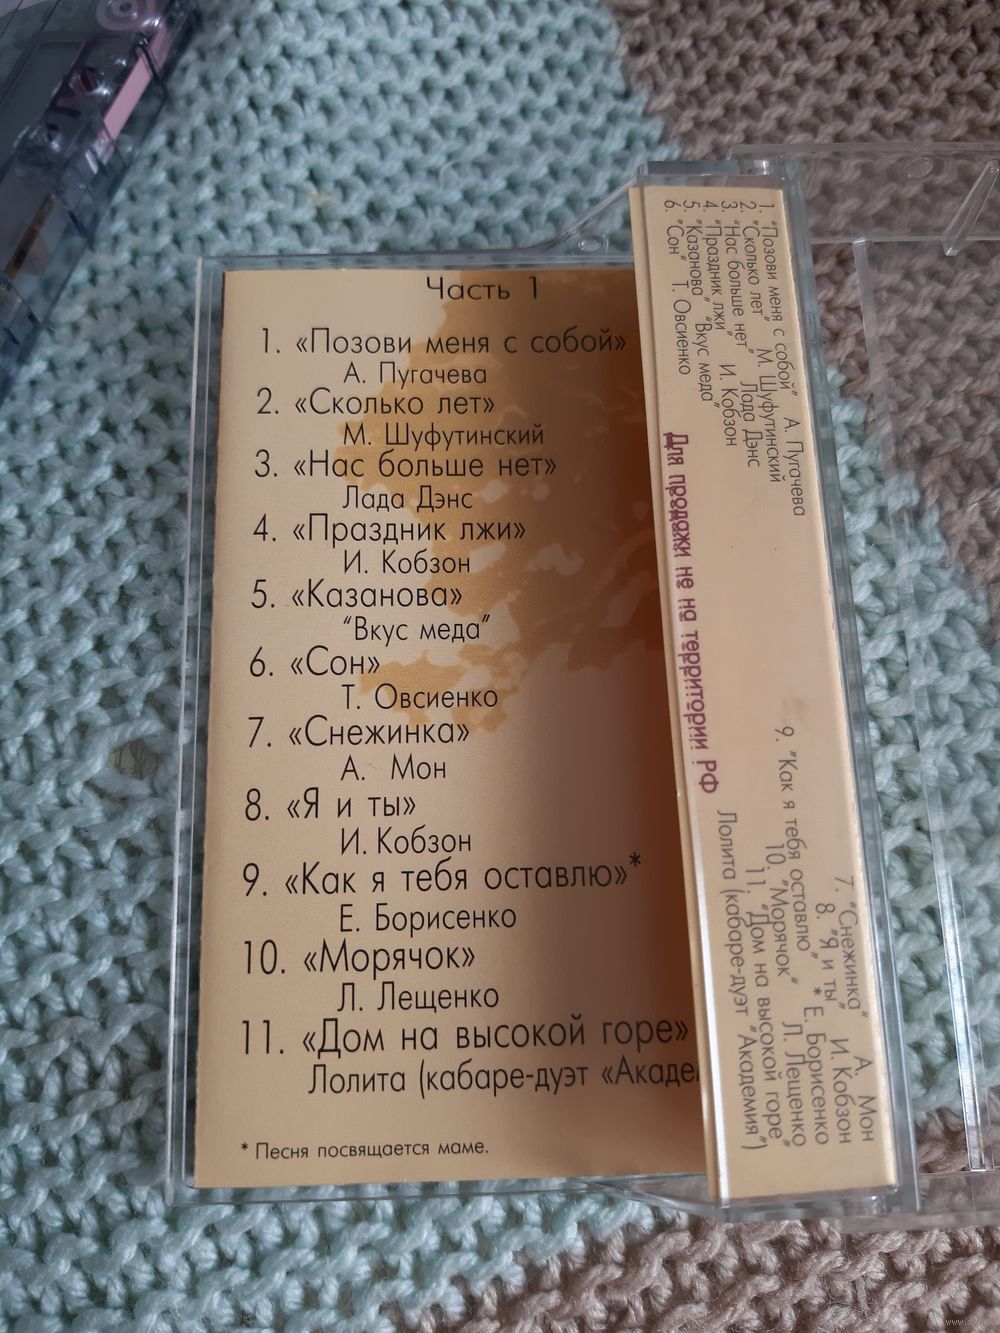 Часть 1
1. «Позови меня с собой»
А. Пугачева
2. «Сколько лет»
М. Шуфутинский
3. «Нас больше нет»
Лада Дэнс
4. «Праздник лжи»
И. Кобзон
5. «Казанова»
"Вкус меда"
6. «Сон»
Т. Овсиенко
7. «Снежинка»
А. Мон
8. «Я и ты»
И. Кобзон
9. «Как я тебя оставлю»*
Е. Борисенко
10. «Морячок»
Л. Лещенко
11. «Дом на высокой горе»
Лолита (кабаре-дуэт «Акаде
* Песня посвящается маме.
1. "Позови меня с собой" А. Пугачева
2. "Сколько лет" М. Шуфутинский
3. "Нас больше нет" Лада Дэнс
4. "Праздник лжи" И. Кобзон
5. "Казанова" "Вкус меда"
6. "Сон" Т. Овсиенко
Для продажи не на территории РФ
7. "Снежинка" А. Мон
8. "Я и ты" И. Кобзон
9. "Как я тебя оставлю" * Е. Борисенко
10. "Морячок" Л. Лещенко
11. "Дом на высокой горе"
Лолита (кабаре-дуэт "Академия")